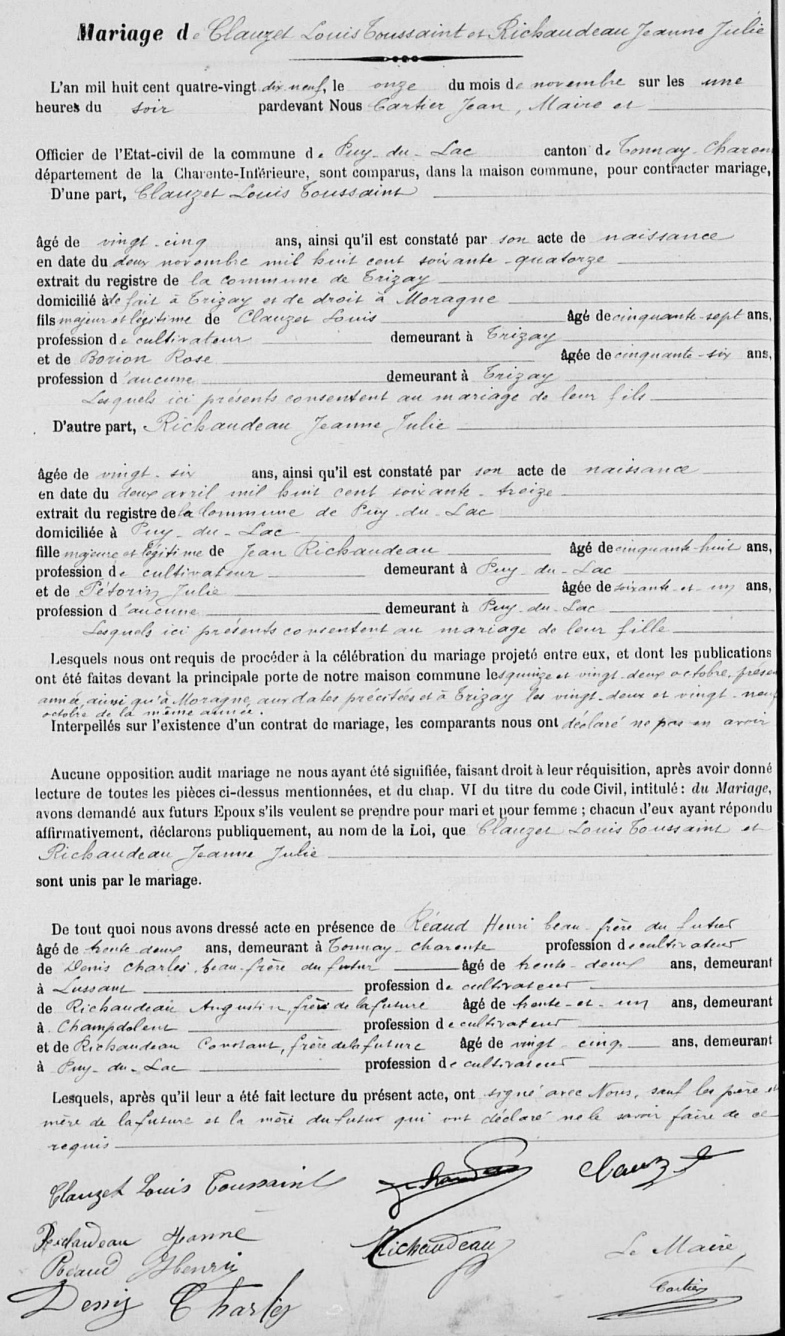 Mariage de Clauzet Louis Toussaint et Richaudeau Jeanne Julie
L'an mil huit cent quatre-vingt dix neuf, le onze du mois de novembre sur les une
heures du soir pardevant Nous Cartier Jean, Maire et
Officier de l'Etat-civil de la commune de Puy-du-Lac canton de Tonnay-Charen
département de la Charente-Inférieure, sont comparus, dans la maison commune, pour contracter mariage,
D'une part, Clauzet Louis Toussaint
âgé de vingt-cinq ans, ainsi qu'il est constaté par son acte de naissance
en date du deux novembre mil huit cent soixante-quatorze
extrait du registre de la commune de Trizay
domicilié à de fait à Trizay et de droit à Moragne
fils majeur et légitime de Clauzet Louis âgé de cinquante-sept ans,
profession de cultivateur demeurant à Trizay
et de Borion Rose âgée de cinquante-six ans,
profession d'aucune demeurant à Trizay
Lesquels ici présents consentent au mariage de leur fils
D'autre part, Richaudeau Jeanne Julie
âgée de vingt-six ans, ainsi qu'il est constaté par son acte de naissance
en date du deux avril mil huit cent soixante-treize
extrait du registre de la Commune de Puy-du-Lac
domiciliée à Puy-du-Lac
fille majeure et légitime de Jean Richaudeau âgé de cinquante-huit ans,
profession de cultivateur demeurant à Puy-du-Lac
et de Pétorin Julie âgée de soixante-et-un ans,
profession d'aucune demeurant à Puy-du-Lac
Lesquels ici présents consentent au mariage de leur fille
Lesquels nous ont requis de procéder à la célébration du mariage projeté entre eux, et dont les publications
ont été faites devant la principale porte de notre maison commune les quinze et vingt-deux octobre, présen
année, ainsi qu'à Moragne aux dates précitées et à Trizay les vingt-deux et vingt-neuf
octobre de la même année.
Interpellés sur l'existence d'un contrat de mariage, les comparants nous ont déclaré ne pas en avoir
Aucune opposition audit mariage ne nous ayant été signifiée, faisant droit à leur réquisition, après avoir donné
lecture de toutes les pièces ci-dessus mentionnées, et du chap. VI du titre du code Civil, intitulé : du Mariage,
avons demandé aux futurs Epoux s'ils veulent se prendre pour mari et pour femme ; chacun d'eux ayant répondu
affirmativement, déclarons publiquement, au nom de la Loi, que Clauzet Louis Toussaint et
Richaudeau Jeanne Julie
sont unis par le mariage.
De tout quoi nous avons dressé acte en présence de Réaud Henri beau-frère du futur
âgé de trente-deux ans, demeurant à Tonnay-Charente profession de cultivateur
de Denis Charles, beau-frère du futur âgé de trente-deux ans, demeurant
à Lussant profession de cultivateur
de Richaudeau Augustin, frère de la future âgé de trente-et-un ans, demeurant
à Champdolent profession de cultivateur
et de Richaudeau Constant, frère de la future âgé de vingt-cinq ans, demeurant
à Puy-du-Lac profession de cultivateur
Lesquels, après qu'il leur a été fait lecture du présent acte, ont signé avec Nous, sauf les père et
mère de la future et la mère du futur qui ont déclaré ne le savoir faire de ce
requis
Clauzet Louis Toussaint Clauzet
Richaudeau Jeanne Richaudeau Le Maire,
Réaud Henri Cartier
Denis Charles